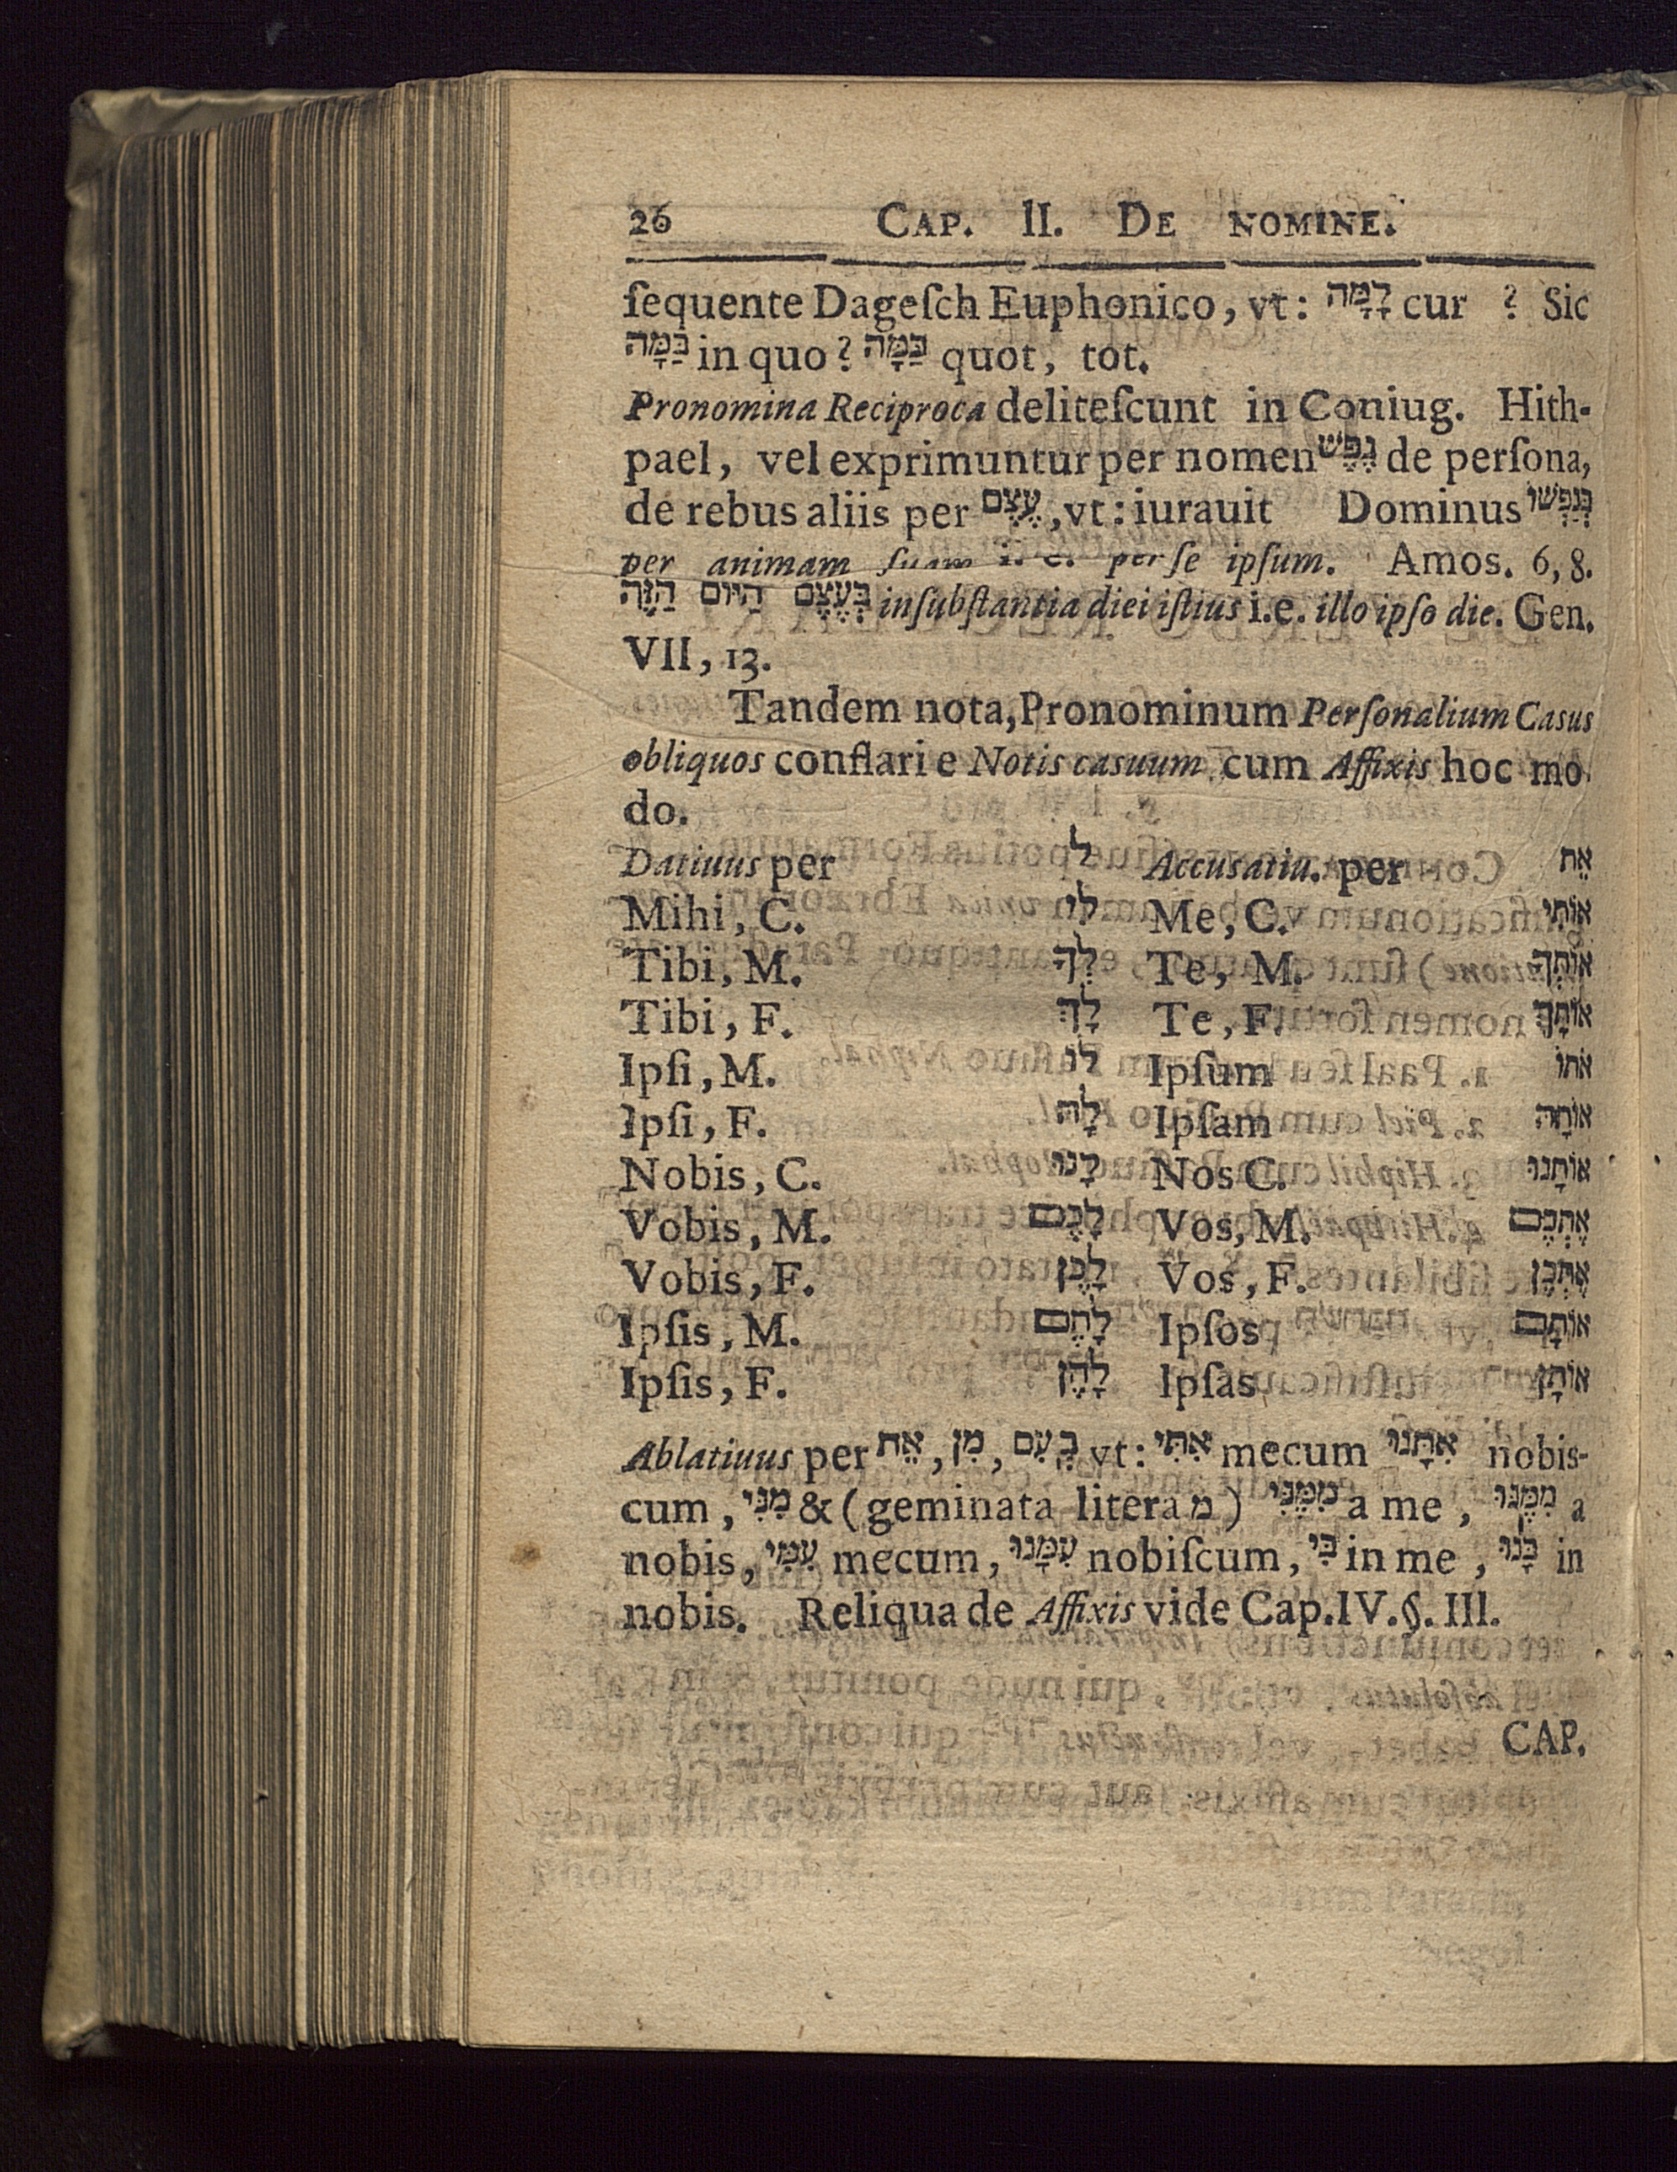 26 CAP. II. DE NOMINE.
ſequente Dageſch Euphonico, vt: לָמָּה cur ? Sic
בַּמָּה in quo? כַּמָּה quot, tot.
Pronomina Reciproca deliteſcunt in Coniug. Hith-
pael, vel exprimuntur per nomen נֶפֶשׁ de perſona,
de rebus aliis per עֶצֶם, vt: iurauit Dominus בְּנַפְשׁוֹ
per animam ſuam i. e. per ſe ipſum. Amos. 6, 8.
בְּעֶצֶם הַיּוֹם הַזֶּה in ſubſtantia diei iſtius i.e. illo ipſo die. Gen.
VII, 13.
Tandem nota, Pronominum Perſonalium Casus
obliquos conflari e Notis casuum cum Affixis hoc mo
do.
Datiuus per ל Accusatiu. per אֶת
Mihi, C. לִי Me, C. אוֹתִי
Tibi, M. לְךָ Te, M. אוֹתְךָ
Tibi, F. לָךְ Te, F. אוֹתָךְ
Ipſi, M. לוֹ Ipſum אֹתוֹ
Ipſi, F. לָהּ Ipſam אוֹתָהּ
Nobis, C. לָנוּ Nos C. אוֹתָנוּ
Vobis, M. לָכֶם Vos, M. אֶתְכֶם
Vobis, F. לָכֶן Vos, F. אֶתְכֶן
Ipſis, M. לָהֶם Ipſos אוֹתָם
Ipſis, F. לָהֶן Ipſas אוֹתָן
Ablatiuus per אֵת, מִן, עִם בְּ vt: אִתִּי mecum אִתָּנוּ nobis-
cum, מִנִּי & (geminata litera מ) מִמֶּנִּי a me, מִמֶּנּוּ a
nobis, עִמִּי mecum, עִמָּנוּ nobiſcum, בִּי in me, בָּנוּ in
nobis. Reliqua de Affixis vide Cap. IV. §. III.
CAP.